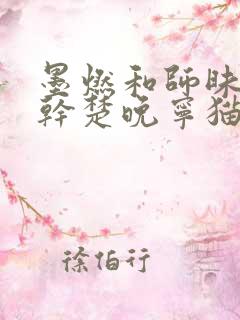 墨燃和師昧
幹楚晚寧猫
徐伯行